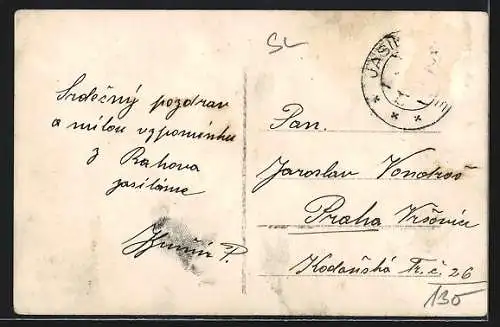 SL
JAS
Srdečný pozdrav
a milou vzpomínku
z Rahova
zasíláme
P.
Pan.
Jaroslav Vondroš
Praha Vršovice
Kodaňská Tř. č. 26
130